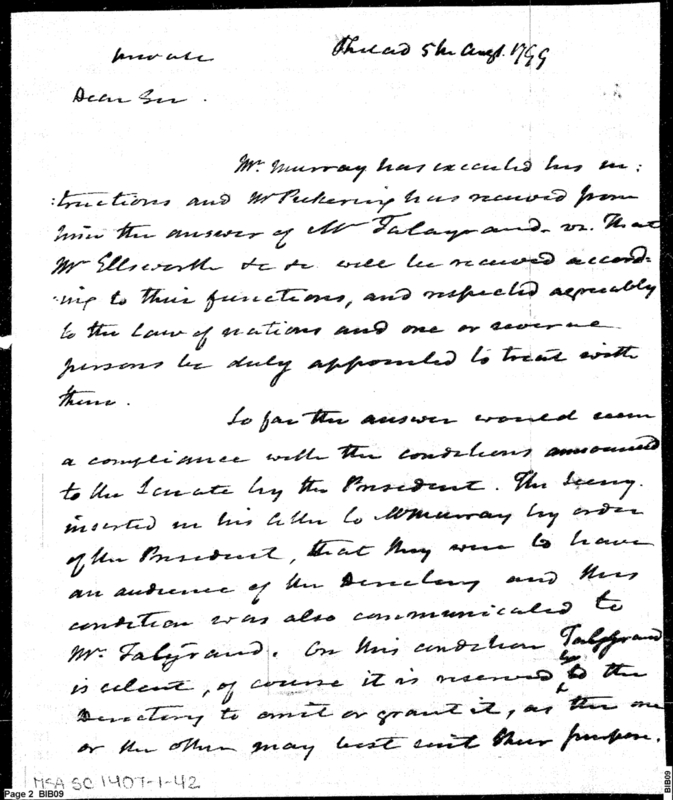 Private
Philad 5th Augt. 1799
Dear Sir.
Mr. Murray has executed his in:
:tructions and Mr Pickering has received from
him the answer of Mr Talayrand. vz. That
Mr Ellsworth &c &c will be received accord-
:ing to their functions, and respected agreeably
to the Law of nations and one or
persons be duly appointed to treat with
them.
So far the answer would seem
a compliance with the conditions announced
to the Senate by the President. The Secry.
inserted in his letter to Mr Murray by order
of the President, that they were to have
an audience of the Directory and this
condition was also communicated to
Mr. Talayrand. On this condition Talayrand
is silent, of course it is reserved by the
Directory to omit or grant it, as the one
or the other may best suit their purpose.
MSA SC 1407-1-42
Page 2 BIB09
BIB09